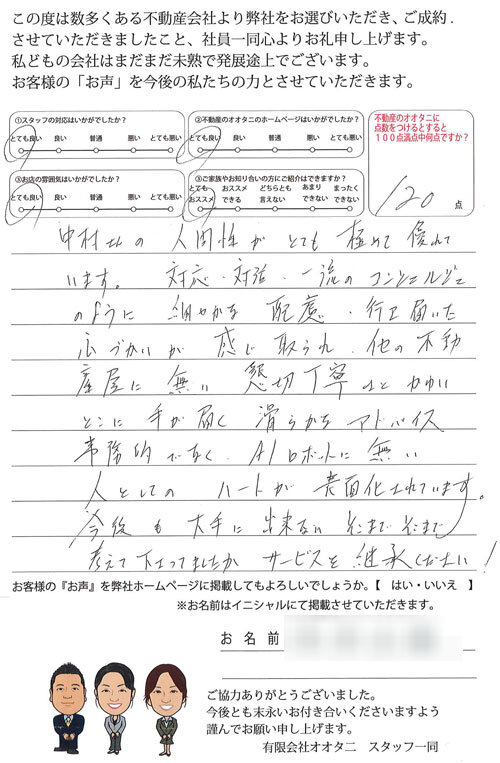 この度は数多くある不動産会社より弊社をお選びいただき、ご成約
させていただきましたこと、社員一同心よりお礼申し上げます。
私どもの会社はまだまだ未熟で発展途上でございます。
お客様の「お声」を今後の私たちの力とさせていただきます。
①スタッフの対応はいかがでしたか?
とても良い 良い 普通 悪い とても悪い
②不動産のオオタニのホームページはいかがでしたか?
とても良い 良い 普通 悪い とても悪い
③お店の雰囲気はいかがでしたか?
とても良い 良い 普通 悪い とても悪い
③ご家族やお知り合いの方にご紹介はできますか?
とても オススメ どちらとも あまり まったく
オススメ できる 言えない できない できない
不動産のオオタニに
点数をつけるとすると
100点満点中何点ですか?
120 点
中村さんの 人間性が とても 極めて 優れて
います。 対応・対話・一流の コンシェルジュ
のように 細やかな 配慮・行き届いた
心づかいが 感じ取られ、他の不動
産屋に 無い 懇切丁寧
手が届く 滑らかな アドバイス
事務的でなく、AIロボットに 無い
人としての ハートが 表面化されています。
今後も 大手に 出来ない そこまで そこまで
考えて下さってましたか サービスを 継承ください!
お客様の『お声』を弊社ホームページに掲載してもよろしいでしょうか。【 はい・いいえ 】
※お名前はイニシャルにて掲載させていただきます。
お名前
ご協力ありがとうございました。
今後とも末永いお付き合いくださいますよう
謹んでお願い申し上げます。
有限会社オオタニ スタッフ一同